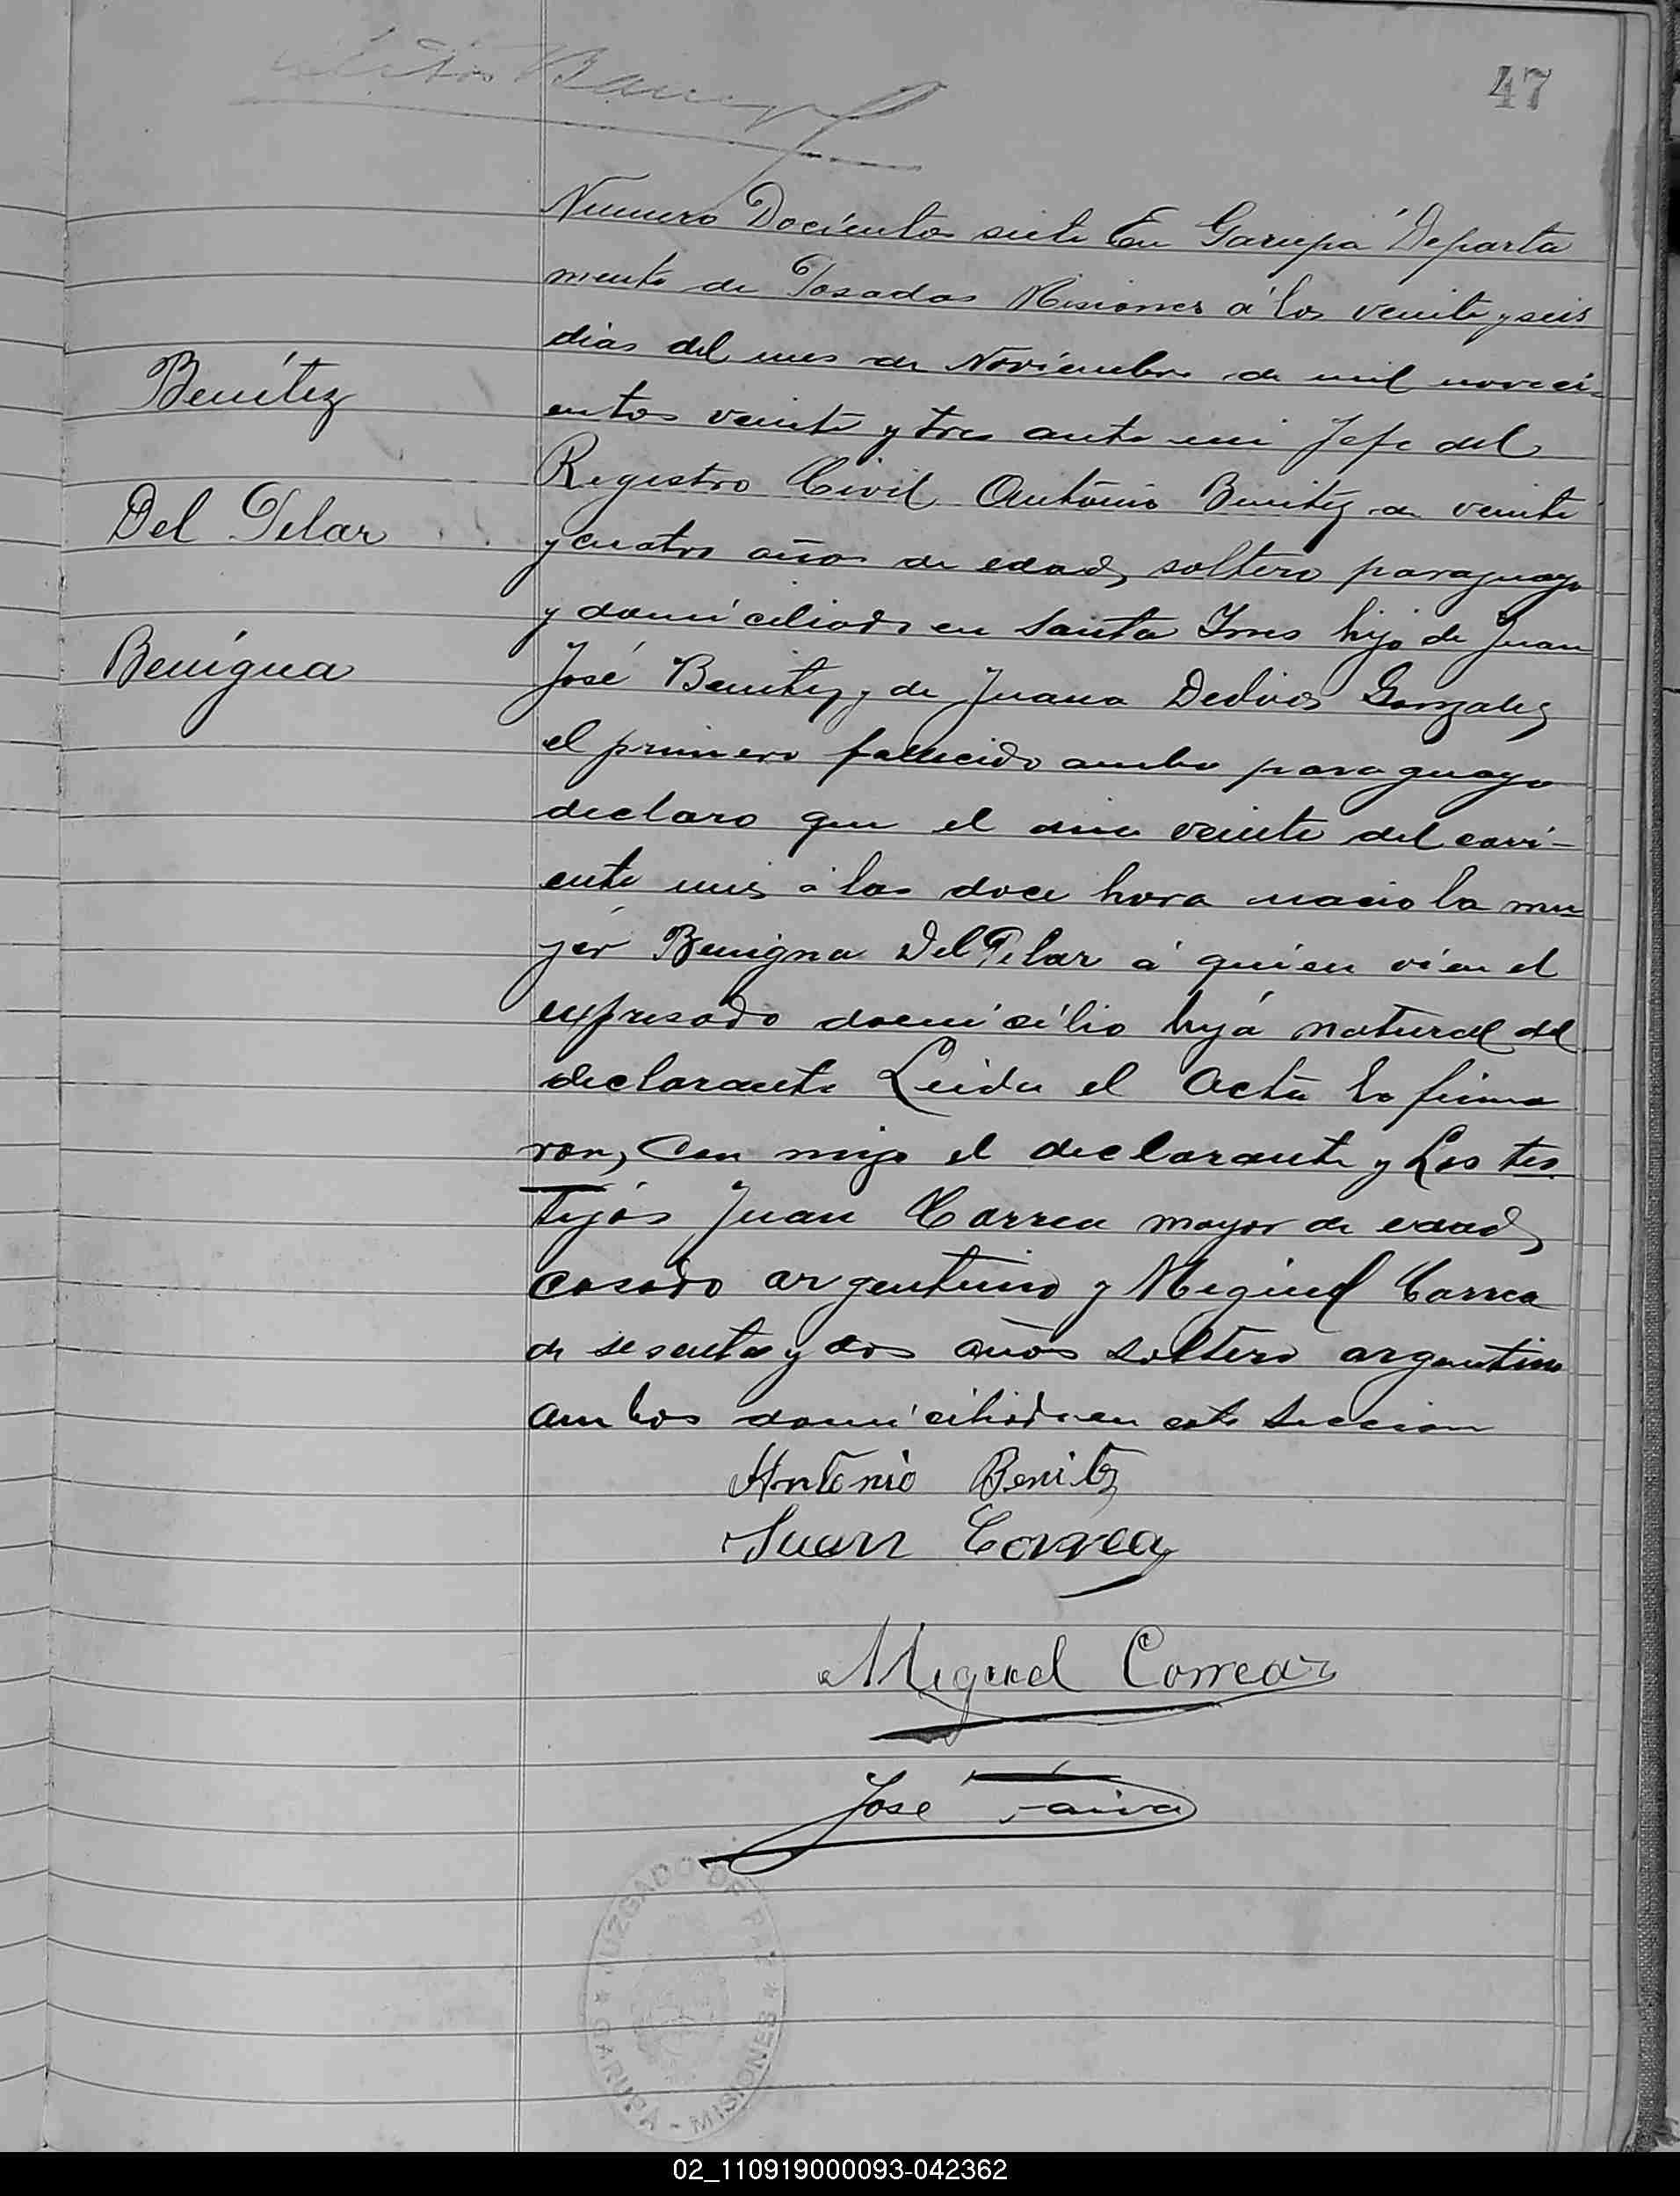 47
Numero Docientos siete En Garupá Departa
mento de Posadas Misiones á los veinte y seis
dias del mes de Noviembre de mil noveci-
entos veinte y tres ante mi Jefe del
Registro Civil Antonio Benitez de veinte
y cuatro años de edad, soltero paraguayo
y domiciliado en Santa Ines hijo de Juan
José Benitez y de Juana Dedios Gonzalez
el primero fallecido ambo paraguayo
declaro que el dia veinte del corri-
ente mes á las doce hora nacio la mu
jer Benigna Del Pilar á quien vi en el
expresado domicilio hija natural del
declarante Leida el Acta la firma
ron, con migo el declarante y Los tes
tijos Juan Correa mayor de edad,
casado argentino y Miguel Correa
de sesenta y dos años soltero argentino
ambos domiciliado en esta Seccion
Benítez
Del Pilar
Benigna
Antonio Benitez
Juan Correa
Miguel Correa
José Paiva
JUZGADO DE PAZ
GARUPÁ - MISIONES
02_110919000093-042362